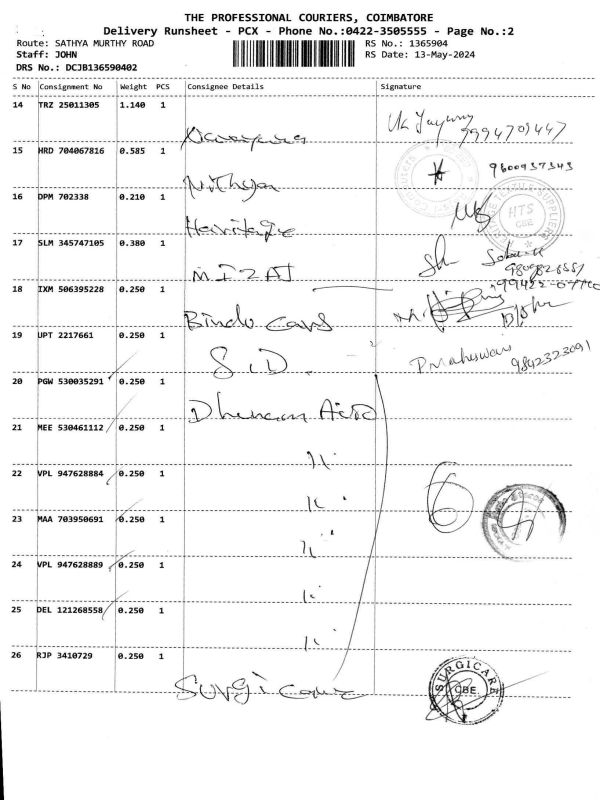 THE PROFESSIONAL COURIERS, COIMBATORE
Delivery Runsheet - PCX - Phone No.:0422-3505555 - Page No.:2
Route: SATHYA MURTHY ROAD RS No.: 1365904
Staff: JOHN RS Date: 13-May-2024
DRS No.: DCJB136590402
S No Consignment No Weight PCS Consignee Details Signature
14 TRZ 25011305 1.140 1
9994709447
15 HRD 704067816 0.585 1
Nithya 9600937343
16 DPM 702338 0.210 1
Heritage HTS CBE
17 SLM 345747105 0.380 1
MIZAJ
18 IXM 506395228 0.250 1
Bindo Cars
19 UPT 2217661 0.250 1
S.D. P Maheswari 9842323091
20 PGW 530035291 0.250 1
Dhenam Auto
21 MEE 530461112 0.250 1
22 VPL 947628884 0.250 1
6
23 MAA 703950691 0.250 1
24 VPL 947628889 0.250 1
25 DEL 121268558 0.250 1
26 RJP 3410729 0.250 1
Surgi care SURGICARE CBE.